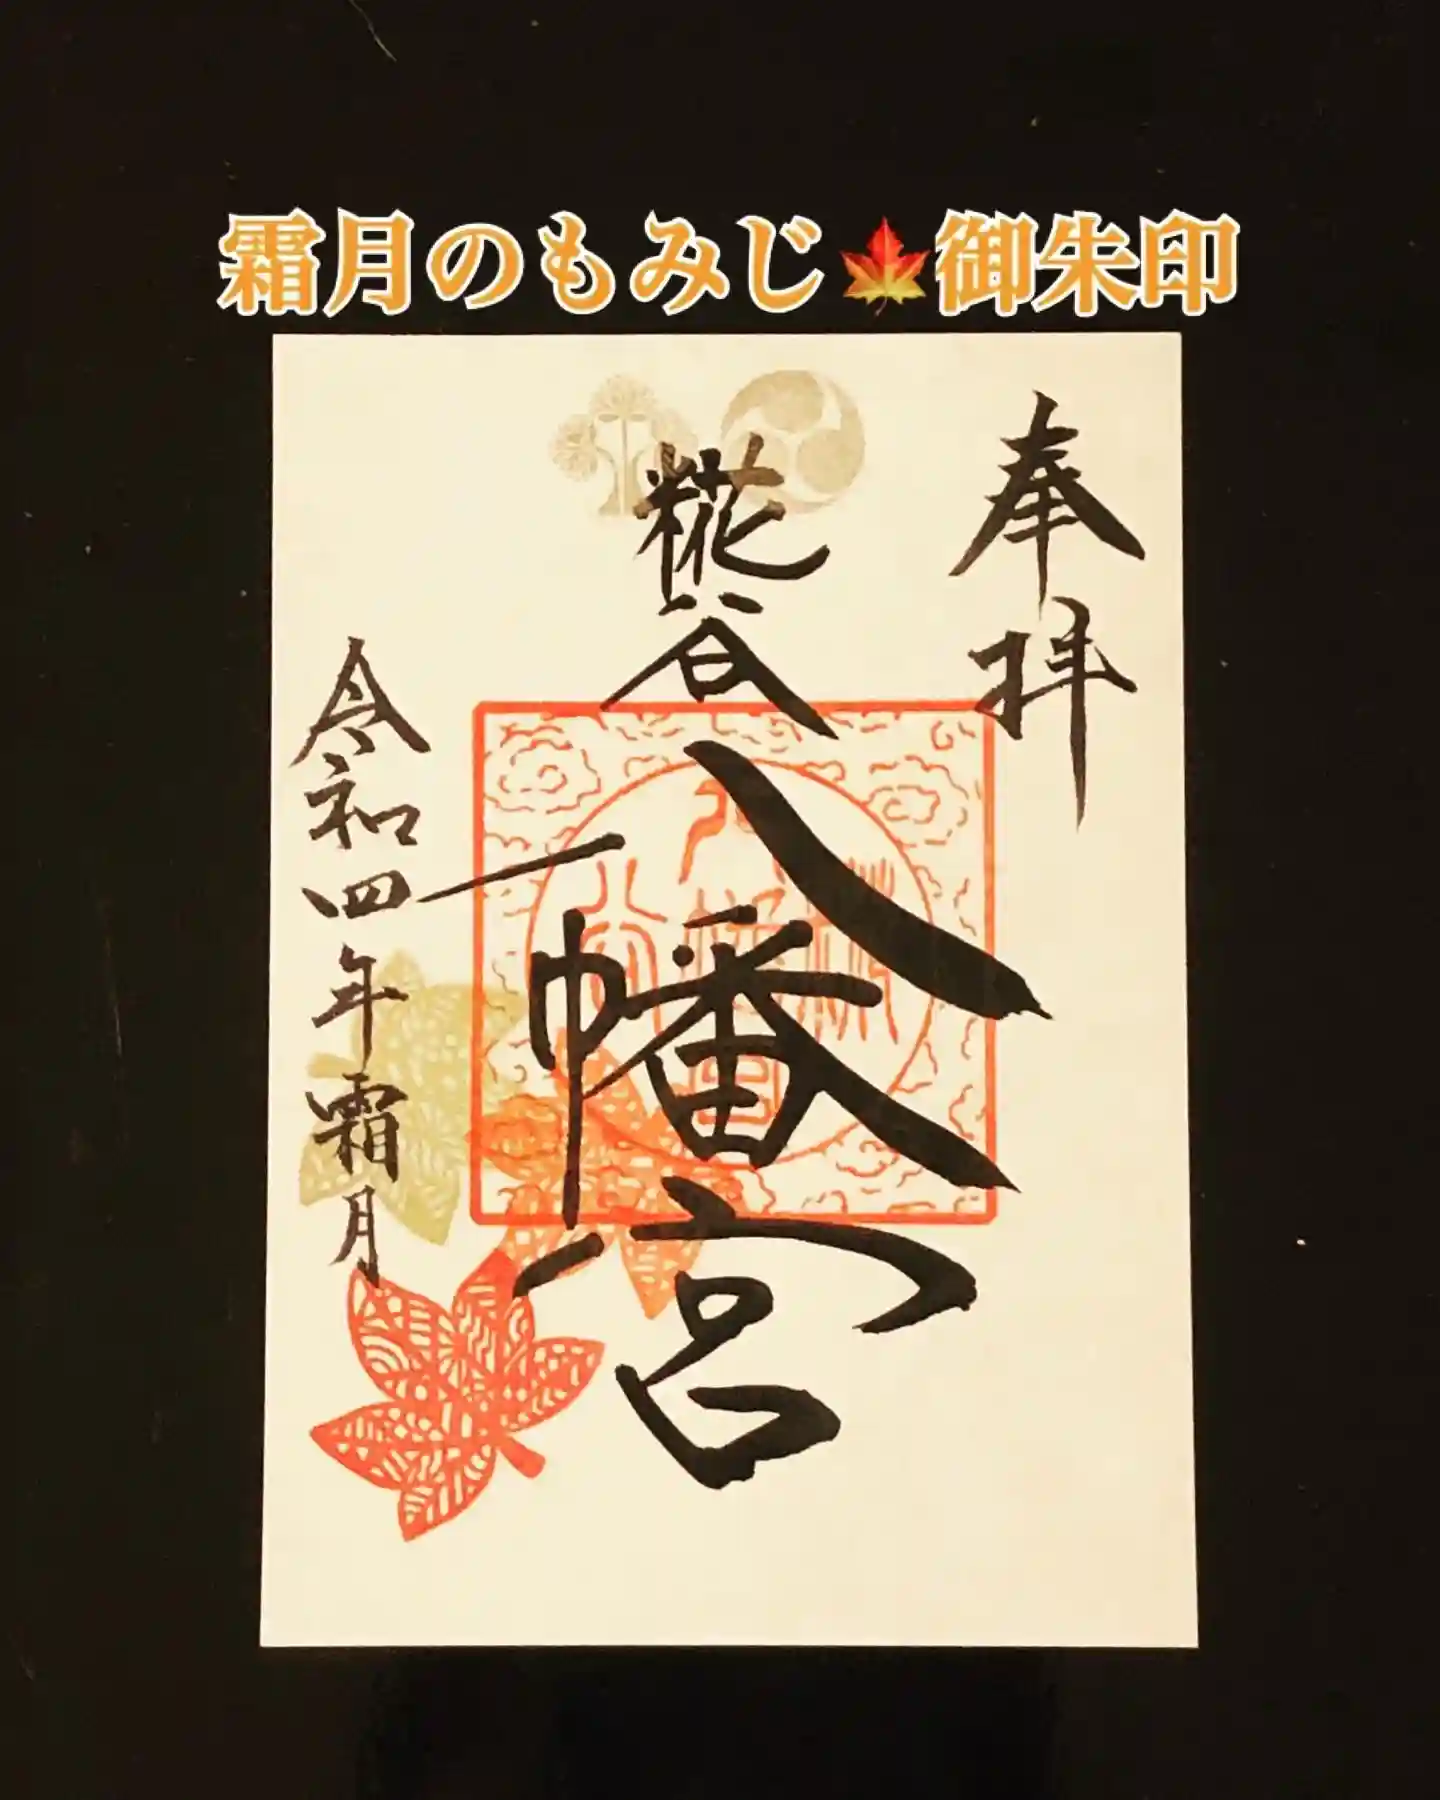 霜月のもみじ🍁御朱印
奉拝
糀谷
八幡宮
令和四年霜月